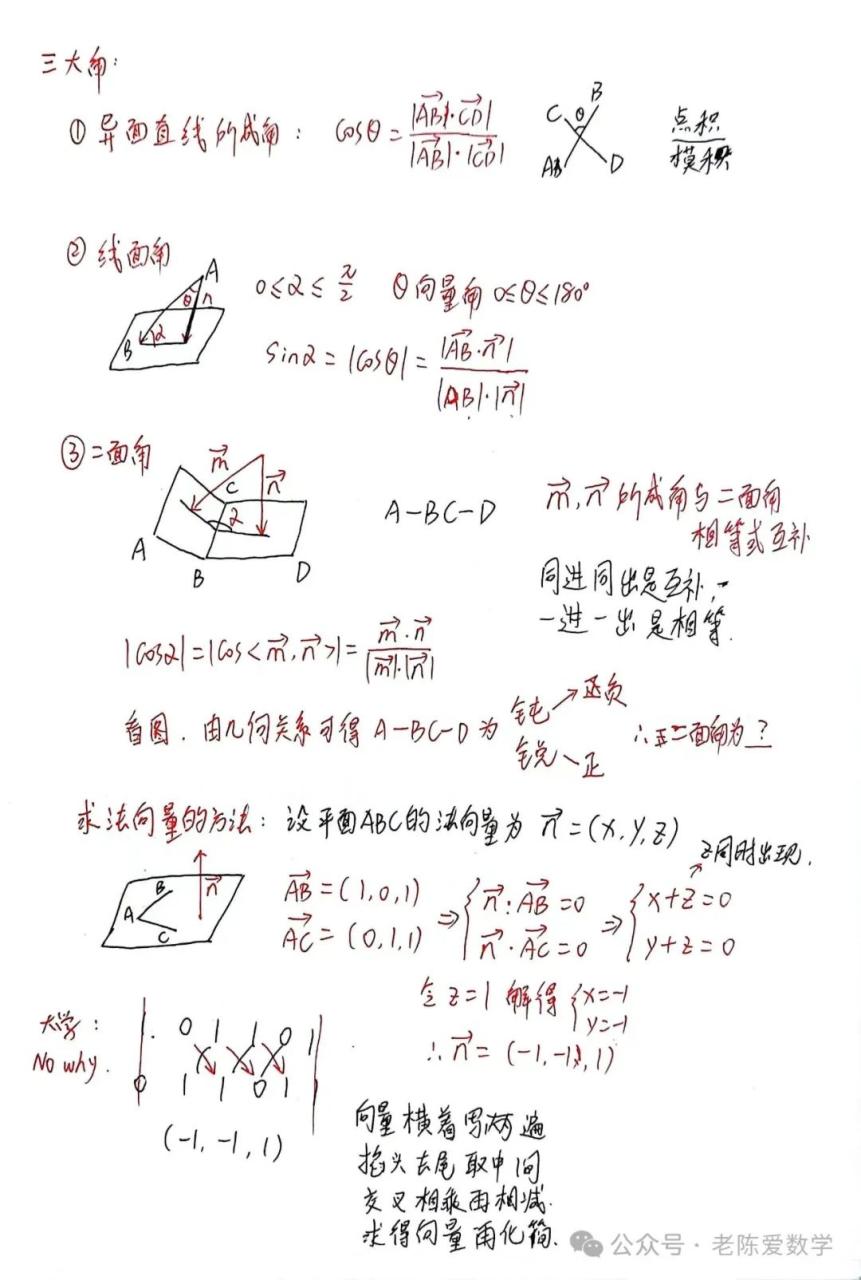 三大角：
① 异面直线所成角： cosθ = |AB·CD| / |AB|·|CD| C B θ A D 点积 / 模积
② 线面角 A θ n B α 0≤α≤π/2 θ向量角 0≤θ≤180°
sinα = |cosθ| = |AB·n| / |AB|·|n|
③ 二面角 m n C α A B D A-BC-D m,n所成角与二面角
相等或互补
同进同出是互补，
一进一出是相等.
|cosα| = |cos<m,n>| = m·n / |m|·|n|
看图. 由几何关系可得 A-BC-D为 钝→负 锐→正 ∴二面角为?
求法向量的方法： 设平面ABC的法向量为 n=(x,y,z)
z同时出现.
A B C n AB=(1,0,1) AC=(0,1,1) ⇒ { n·AB=0 n·AC=0 ⇒ { x+z=0 y+z=0
令z=1 解得 { x=-1 y=-1
∴ n=(-1,-1,1)
大学：
No why.
0 1 1 0 1
0 1 1 0 1
(-1,-1,1)
向量横着写两遍
掐头去尾取中间
交叉相乘再相减.
求得向量再化简.
公众号·老陈爱数学